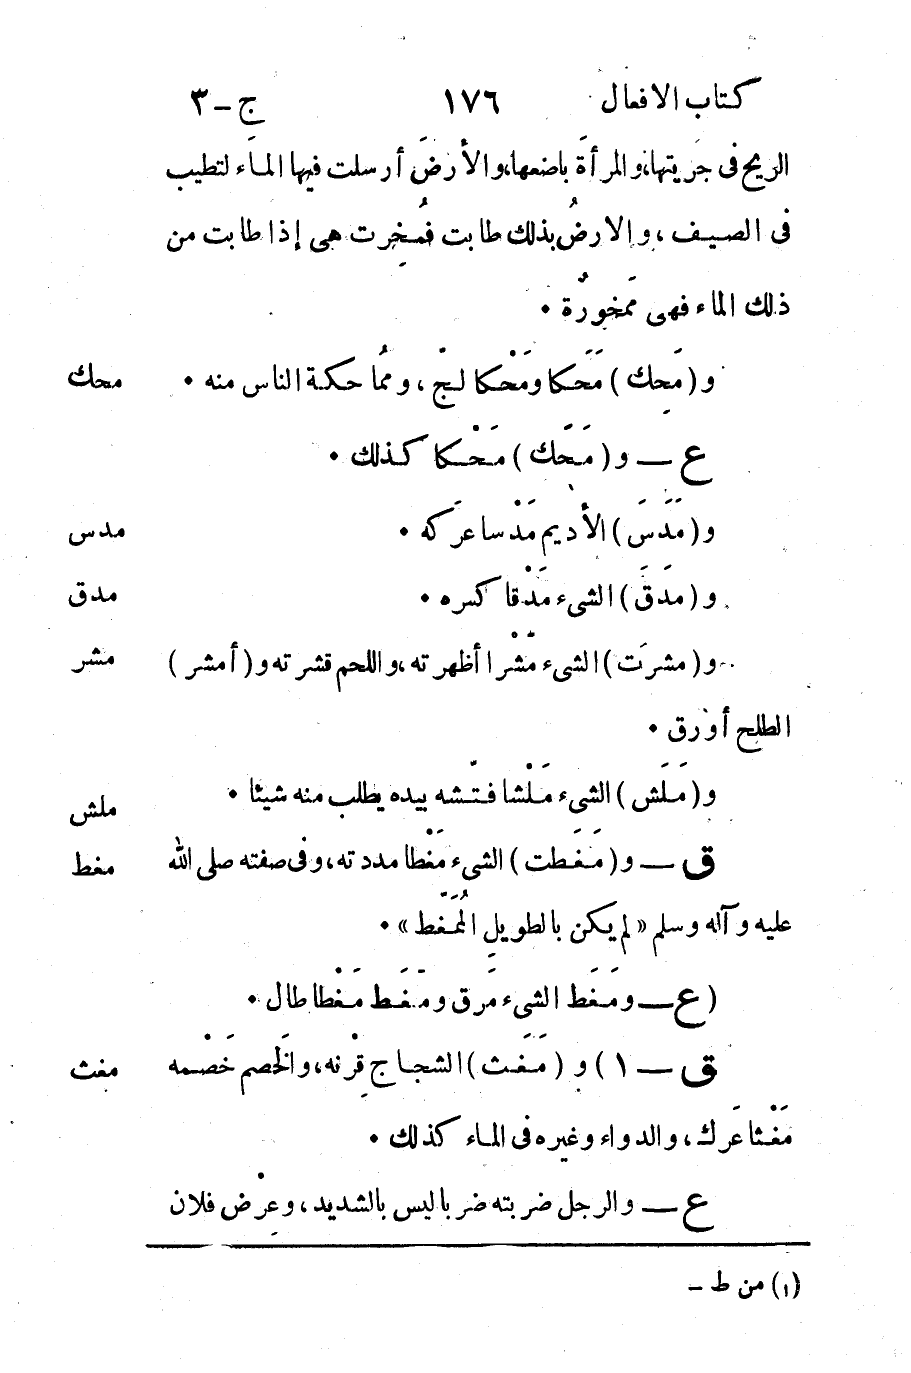 كتاب الافعال ١٧٦ ج – ٣
الريح فى جَريتها، والمرأةَ باضعها، والأرضَ أرسلت فيها الماَء لتطيب
فى الصيف، والارضُ بذلك طابت فمُخِرت هى إذا طابت من
ذلك الماء فهى مَمخورُة •
و (مَحِك) مَحَكا ومَحْكا لجْ، ومُما حكة الناس منه • محك
ع – و (مَحَك) مَحْكا كذلك •
و (مَدَسَ) الأَديم مَدْسا عرَكه • مدس
و (مَدَقَ) الشىء مَدْقا كسره • مدق
و (مشرَت) الشىء مَشْرا أظهرته، واللحم قشرته و (أمشر) مشر
الطلح أورق •
و (مَلَش) الشىء مَلْشا فتّشه بيده يطلب منه شيئا • ملش
ق – و (مَغَطت) الشىء مَغْطا مددته، وفى صفته صلى الله مغط
عليه وآله وسلم «لم يكن بالطويلِ المُمَّغط» •
(ع – ومَغَط الشىء مَرق ومَغّط مَغْطا طال •
ق – ١) و (مَغَث) الشجاج قِرْنه، والخَصم خَصْمه مغث
مَغْثا عَرك، والدواء وغيره فى الماء كذلك •
ع – والرجل ضربته ضربا ليس بالشديد، وعِرْض فلان
(١) من ط –